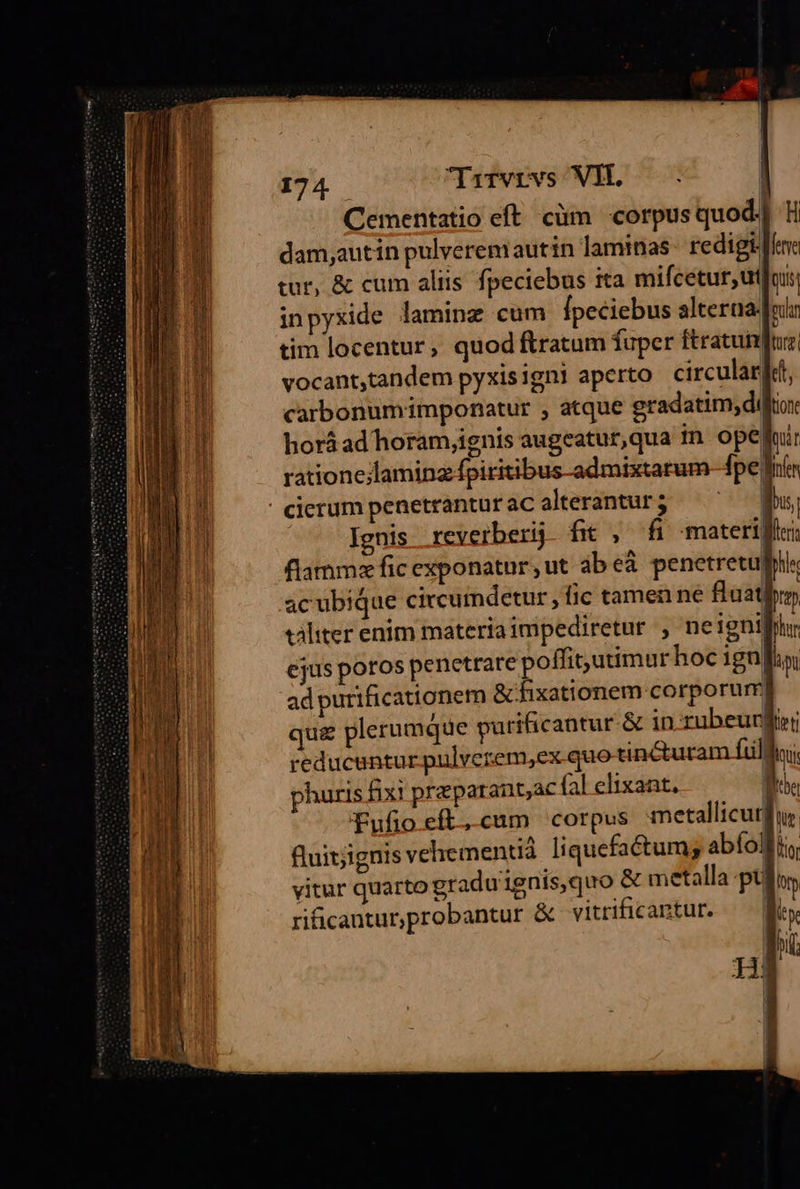 174 TITVLVS VII.
Cementatio eſt cùm corpus quod-
dam, aut in pulverem aut in laminas redigi-
tur, & cum aliis ſpeciebus ita miſcetur, ut
in pyxide laminæ cum ſpeciebus alterna-
tim locentur, quod ſtratum ſuper ſtratum
vocant, tandem pyxis igni aperto circular
carbonum imponatur, atque gradatim, di
horâ ad horam, ignis augeatur, qua in ope
ratione; laminæ ſpiritibus admixtarum ſpe
cierum penetrantur ac alterantur;
Ignis reverberij fit, ſi materi
flammæ ſic exponatur, ut ab eâ penetretu
ac ubique circumdetur, ſic tamen ne fluat
táliter enim materia impediretur, ne igni
ejus poros penetrare poſſit, utimur hoc ign
ad purificationem & fixationem corporum
quæ plerumque purificantur & in rubeun
reducuntur pulverem, ex quo tincturam ſul
phuris fixi præparant, ac ſal elixant.
Fuſio eſt, cum corpus metallicum
fluit, ignis vehementiâ liquefactum, abſol
vitur quarto gradu ignis, quo & metalla pu
rificantur, probantur & vitrificantur.
H